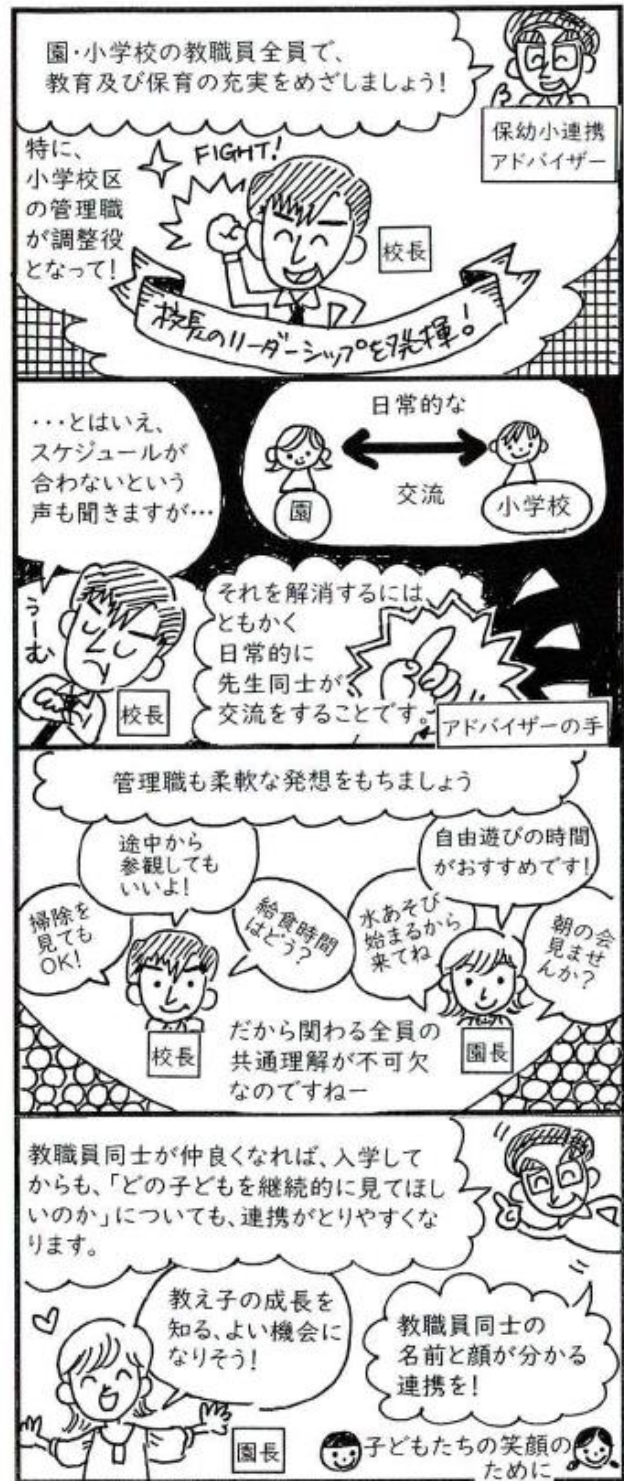 園・小学校の教職員全員で、
教育及び保育の充実をめざしましょう!
保幼小連携
アドバイザー
特に、
小学校区
の管理職
が調整役
となって!
FIGHT!
校長
校長のリーダーシップを発揮!
・・・とはいえ、
スケジュールが
合わないという
声も聞きますが・・・
日常的な
交流
園
小学校
うーむ
校長
それを解消するには、
ともかく
日常的に
先生同士が
交流をすることです。
アドバイザーの手
管理職も柔軟な発想をもちましょう
途中から
参観しても
いいよ!
自由遊びの時間
がおすすめです!
掃除を
見ても
OK!
給食時間
はどう?
水あそび
始まるから
来てね
朝の会
見ませ
んか?
校長
園長
だから関わる全員の
共通理解が不可欠
なのですねー
教職員同士が仲良くなれば、入学して
からも、「どの子どもを継続的に見てほし
いのか」についても、連携がとりやすくな
ります。
教え子の成長を
知る、よい機会に
なりそう!
教職員同士の
名前と顔が分かる
連携を!
園長
子どもたちの笑顔の
ために